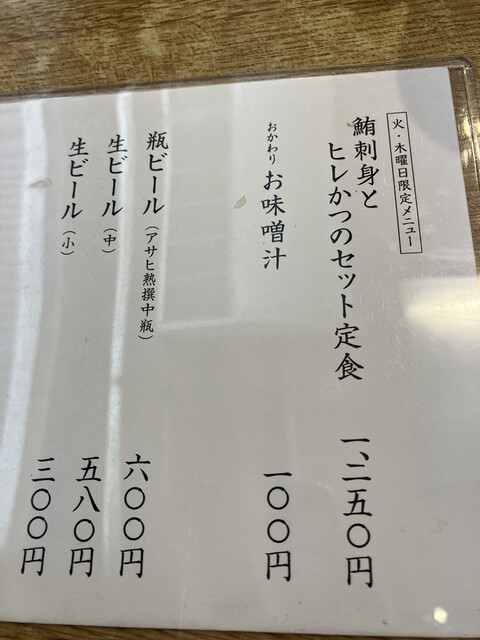 火・木曜日限定メニュー
鮪刺身と
ヒレかつのセット定食
一、二五〇円
おかわり お味噌汁
一〇〇円
瓶ビール(アサヒ熟撰中瓶)
六〇〇円
生ビール(中)
五八〇円
生ビール(小)
三〇〇円